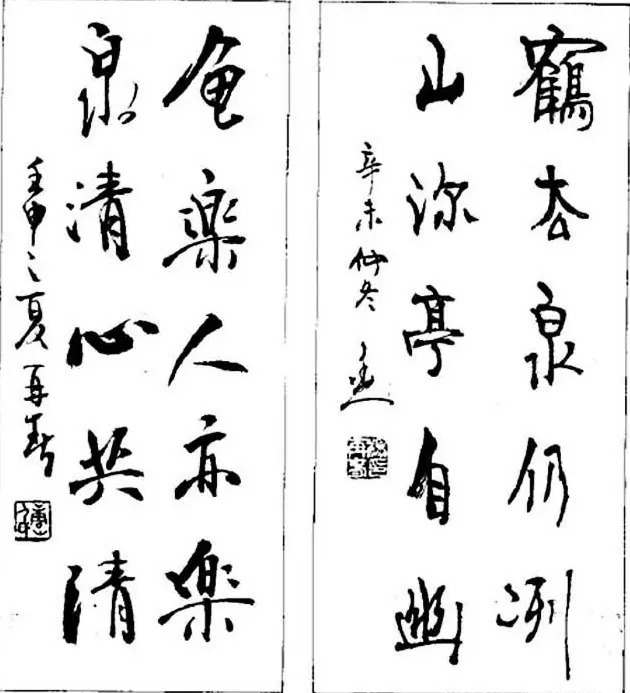 鶴去泉仍冽
山深亭自幽
辛未仲冬
魚樂人亦樂
泉清心共清
壬申之夏再春